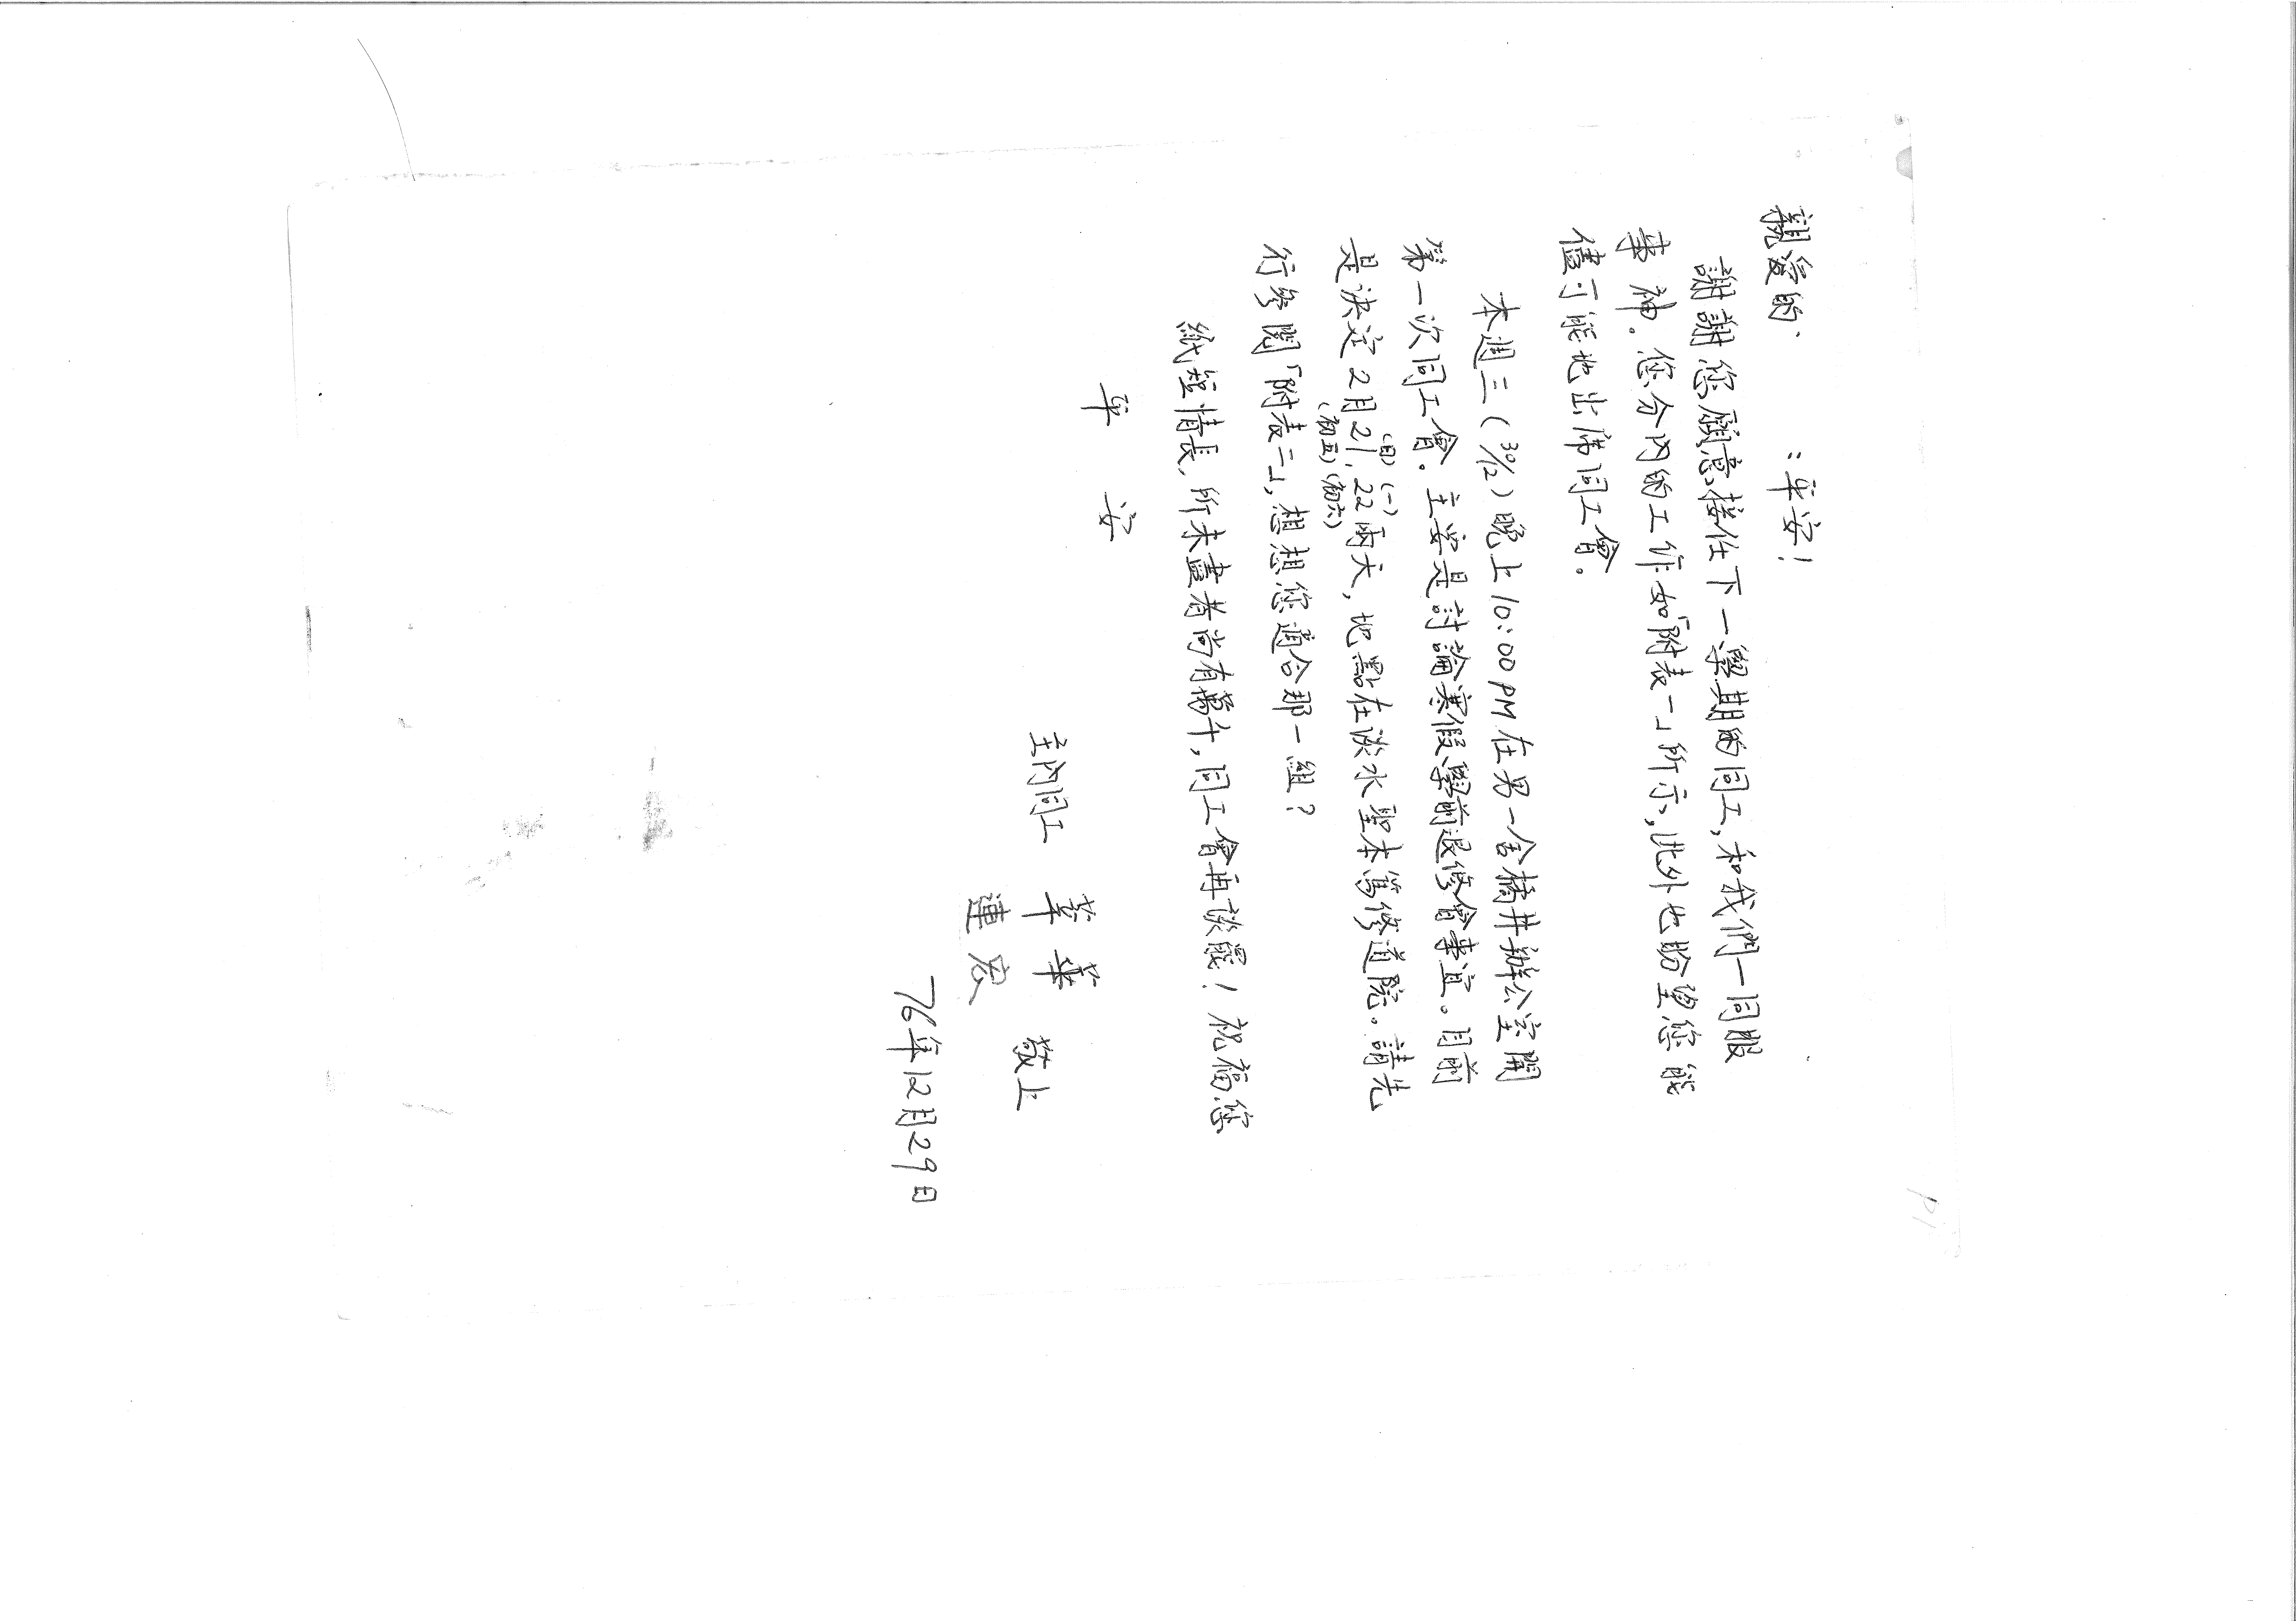 親愛的、　　　：平安！
謝謝您願意接任下一學期的同工，和我們一同服
事神。您分內的工作如「附表一」所示，此外也盼望您能
儘可能地出席同工會。
本週三（30/12）晚上10:00PM在男一舍橘井辦公室開
第一次同工會。主要是討論寒假學前退修會事宜。目前
(日)(一)
是決定2月21,22兩天，地點在淡水聖本篤修道院。請先
(初五)(初六)
行參閱「附表二」，想想您適合那一組？
紙短情長，所未盡者尚有萬千，同工會再談罷！祝福您
平　安
主內同工　華　敬上
蓮
76年12月29日
P1